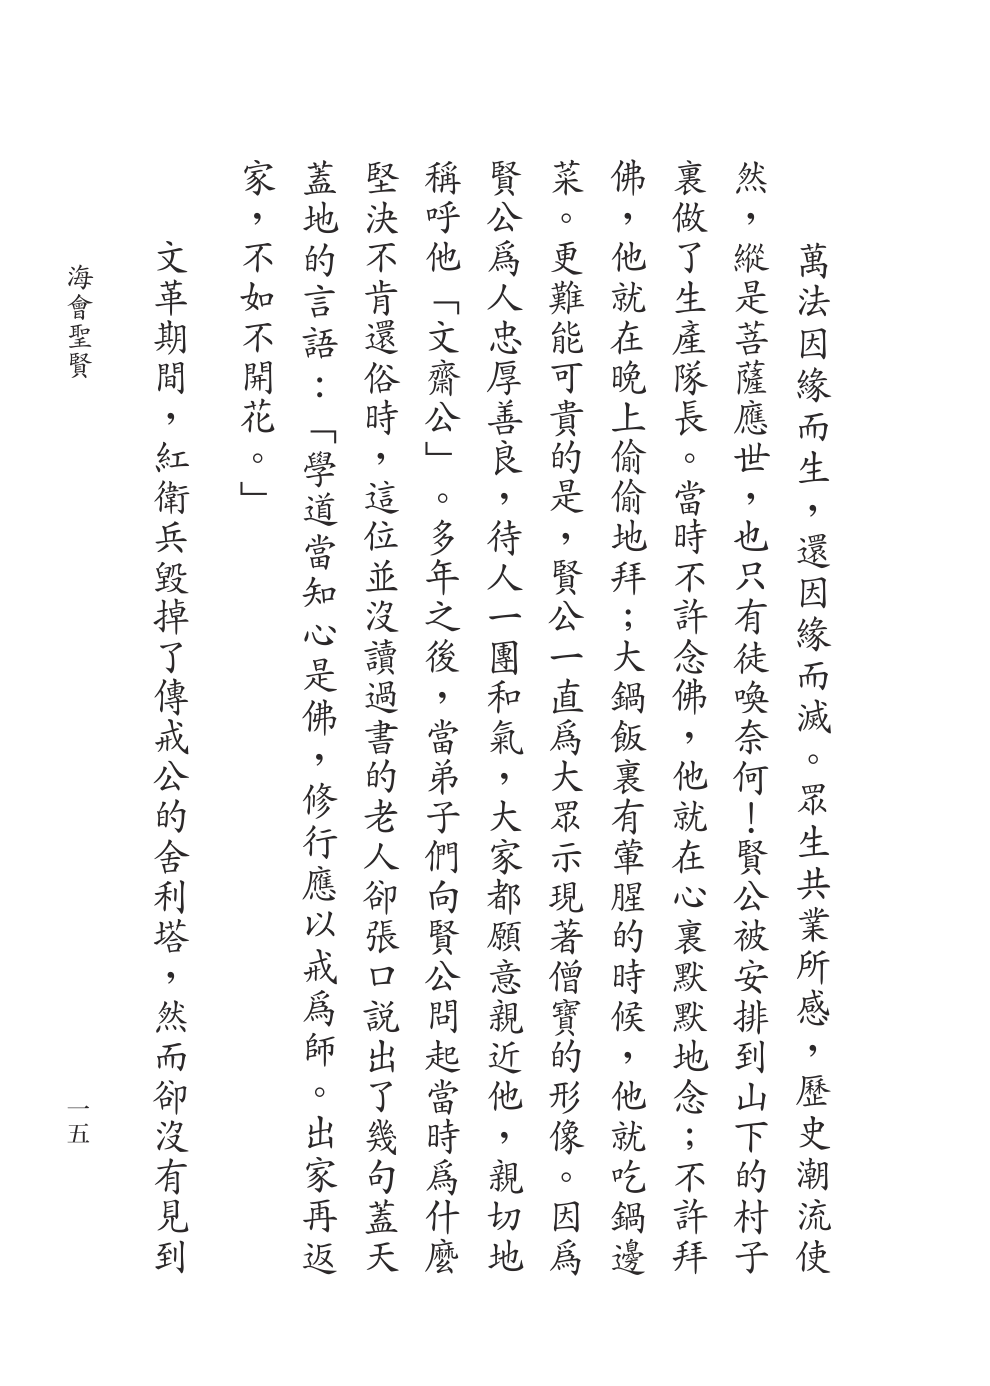 萬法因緣而生，還因緣而滅。眾生共業所感，歷史潮流使
然，縱是菩薩應世，也只有徒喚奈何！賢公被安排到山下的村子
裏做了生產隊長。當時不許念佛，他就在心裏默默地念；不許拜
佛，他就在晚上偷偷地拜；大鍋飯裏有葷腥的時候，他就吃鍋邊
菜。更難能可貴的是，賢公一直爲大眾示現著僧寶的形像。因爲
賢公爲人忠厚善良，待人一團和氣，大家都願意親近他，親切地
稱呼他「文齋公」。多年之後，當弟子們向賢公問起當時爲什麼
堅決不肯還俗時，這位並沒讀過書的老人卻張口説出了幾句蓋天
蓋地的言語：「學道當知心是佛，修行應以戒爲師。出家再返
家，不如不開花。」
文革期間，紅衛兵毀掉了傳戒公的舍利塔，然而卻沒有見到
海會聖賢
一五